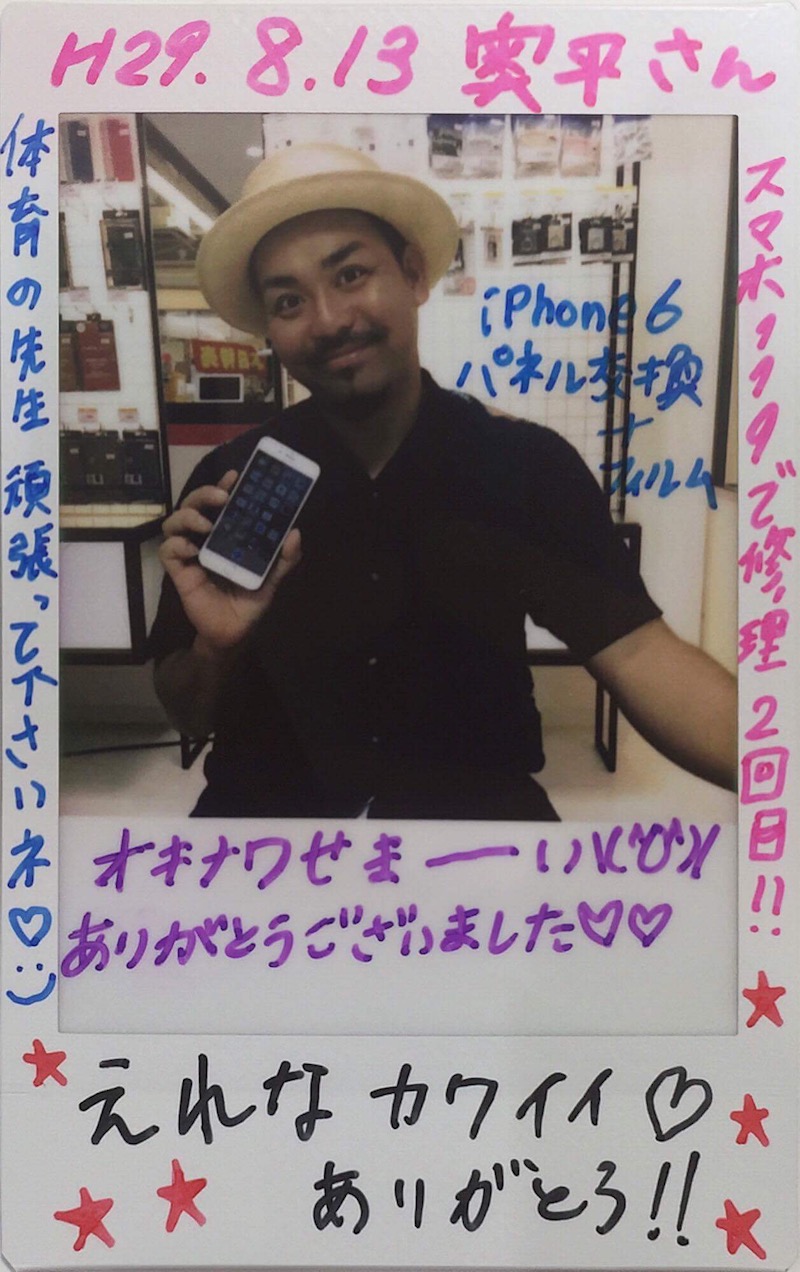 H29. 8.13 さん
体育の先生 頑張って下さいネ♡:)
スマホ119で修理 2回目!!
iPhone6
パネル交換
+
フィルム
オキナワせまーい\(^O^)/
ありがとうございました♡♡
えれな カワイイ♡
ありがとう!!